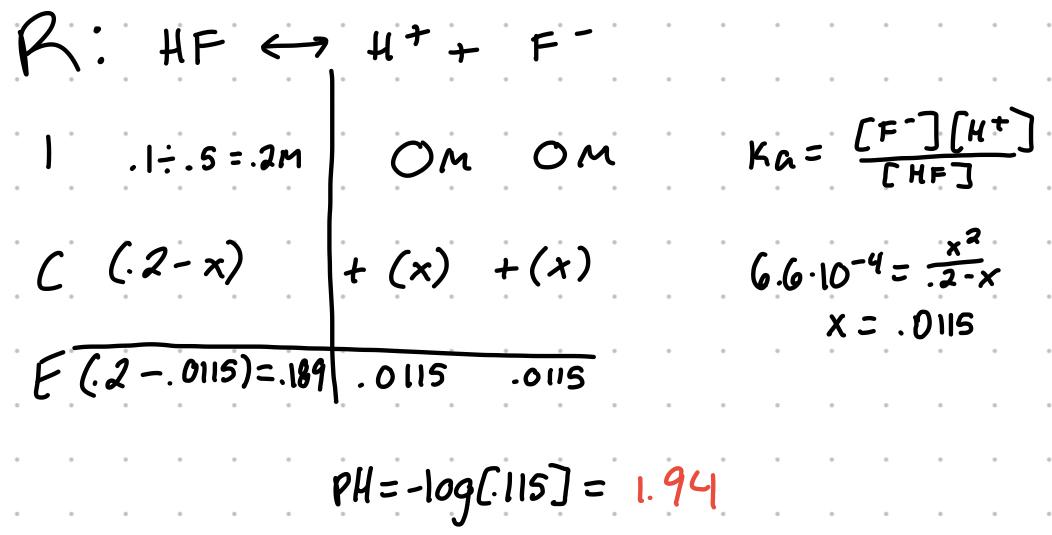 R: HF ↔ H⁺ + F⁻
I .1÷.5=.2M 0M 0M
Ka= [F⁻][H⁺] / [HF]
C (.2-x) +(x) +(x)
6.6·10⁻⁴= x² / .2-x
x = .0115
E (.2-.0115)=.189 .0115 .0115
pH=-log[.115]= 1.94